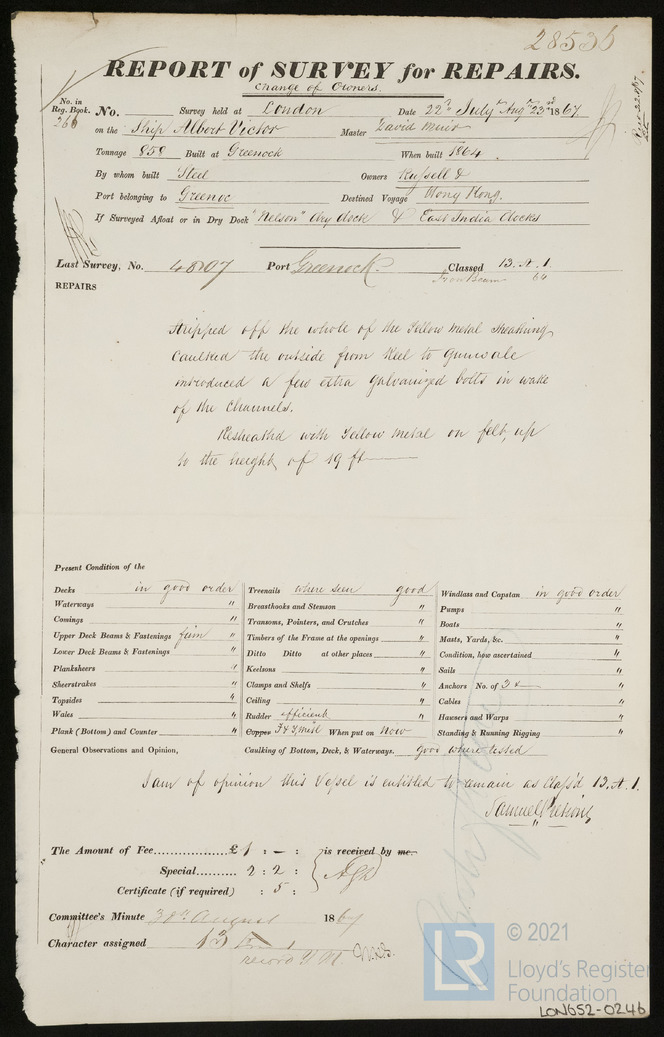 28536
REPORT of SURVEY for REPAIRS.
Change of Owners.
No. in Reg. Book. 266 No. Survey held at London Date 22nd July, Augt 23rd 1867
on the Ship Albert Victor Master David Muir
Tonnage 858 Built at Greenock When built 1864.
By whom built Steel Owners Russell &
Port belonging to Greenoc Destined Voyage Hong Kong.
If Surveyed Afloat or in Dry Dock "Nelson" Dry dock & East India Docks
Last Survey, No. 48707 Port Greenock. Classed 13. A. 1.
Iron Beam 64
REPAIRS
Stripped off the whole of the Yellow Metal Sheathing
Caulked the outside from Keel to Gunwale
introduced a few extra galvanized bolts in wake
of the Channels.
Resheathed with Yellow Metal on felt, up
to the height of 19 ft
Present Condition of the
Decks in good order Treenails where seen good Windlass and Capstan in good order
Waterways " Breasthooks and Stemson " Pumps "
Comings " Transoms, Pointers, and Crutches " Boats "
Upper Deck Beams & Fastenings firm " Timbers of the Frame at the openings " Masts, Yards, &c. "
Lower Deck Beams & Fastenings " Ditto Ditto at other places " Condition, how ascertained "
Planksheers " Keelsons " Sails "
Sheerstrakes " Clamps and Shelfs " Anchors No. of 3 &
Topsides " Ceiling " Cables "
Wales " Rudder efficient Hawsers and Warps "
Plank (Bottom) and Counter " Copper F & Y, Metl When put on Now Standing & Running Rigging "
General Observations and Opinion, Caulking of Bottom, Deck, & Waterways. good where tested
I am of opinion this Vessel is entitled to remain as Class'd 13. A. 1.
Samuel
The Amount of Fee £ 1 : – : is received by me.
Special 2 : 2 :
Certificate (if required) : 5 :
Committee's Minute 30th August 1867
Character assigned 13 A 1
record YM.
© 2021
LR
Lloyd's Register
Foundation
LON652-0246